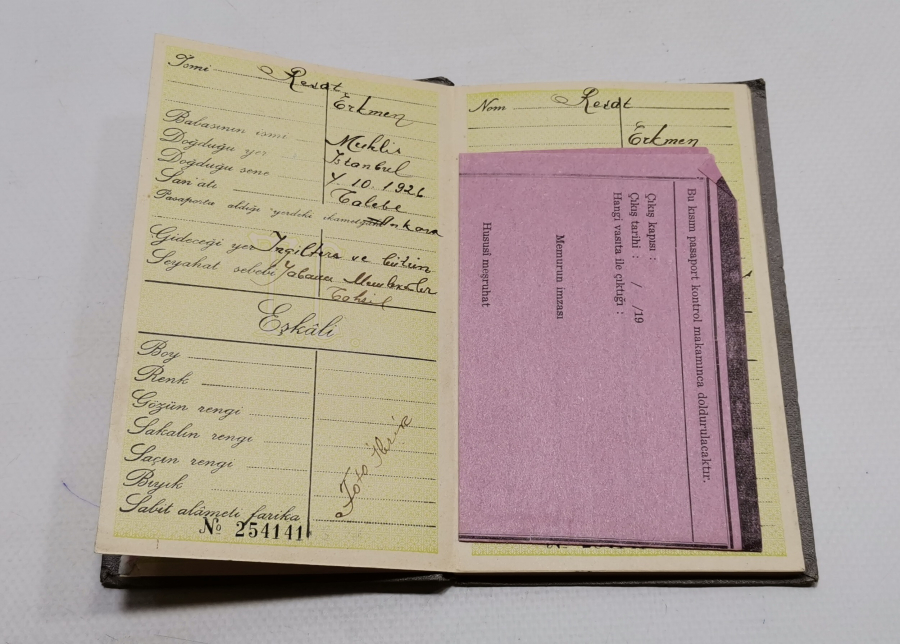 İsmi Resat
Erkmen
Babasının ismi Muhlis
Doğduğu yer İstanbul
Doğduğu sene 4.10.1926
San'atı Talebe
Pasaportu aldığı yerdeki ikametgâhı Ankara
Gideceği yer İngiltere ve bütün
Seyahat sebebi Yabancı Memleketler
Tahsil
Eşkâli
Boy
Renk
Gözün rengi
Sakalın rengi
Saçın rengi
Bıyık
Sabit alâmeti farika
Foto
No 254141
Nom Resat
Erkmen
Bu kısım pasaport kontrol makamınca doldurulacaktır.
Çıkış kapısı :
Çıkış tarihi : / /19
Hangi vasıta ile çıktığı :
Memurun imzası
Hususî meşruhat